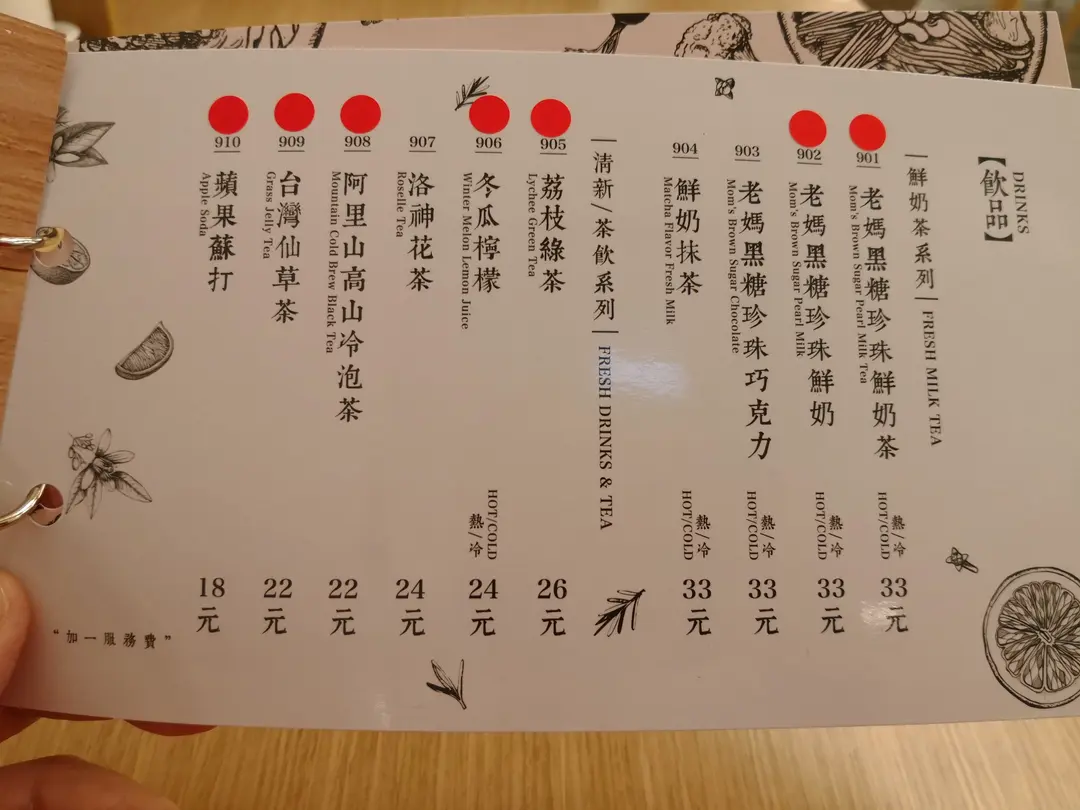 【飲品】
DRINKS
鮮奶茶系列 | FRESH MILK TEA
901
老媽黑糖珍珠鮮奶茶
Mom's Brown Sugar Pearl Milk Tea
熱/冷
HOT/COLD
33元
902
老媽黑糖珍珠鮮奶
Mom's Brown Sugar Pearl Milk
熱/冷
HOT/COLD
33元
903
老媽黑糖珍珠巧克力
Mom's Brown Sugar Chocolate
熱/冷
HOT/COLD
33元
904
鮮奶抹茶
Matcha Flavor Fresh Milk
熱/冷
HOT/COLD
33元
清新/茶飲系列 | FRESH DRINKS & TEA
905
荔枝綠茶
Lychee Green Tea
26元
906
冬瓜檸檬
Winter Melon Lemon Juice
HOT/COLD
熱/冷
24元
907
洛神花茶
Roselle Tea
24元
908
阿里山高山冷泡茶
Mountain Cold Brew Black Tea
22元
909
台灣仙草茶
Grass Jelly Tea
22元
910
蘋果蘇打
Apple Soda
18元
"加一服務費"